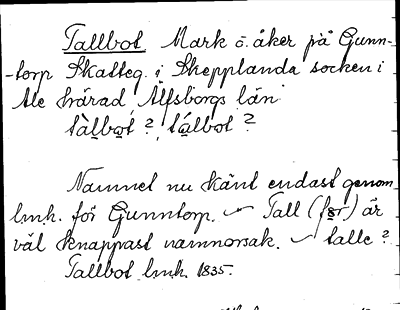 Tallbot Mark o. åker på Gunn-
-torp Skatteg. i Skepplanda socken i
Ale härad Älfsborgs län
tàlbot? tálbot?
Namnet nu känt endast genom
lmh. för Gunntorp. ~ Tall (fɜr) är
väl knappast namnorsak. ~ talle?
Tallbot lmh. 1835.